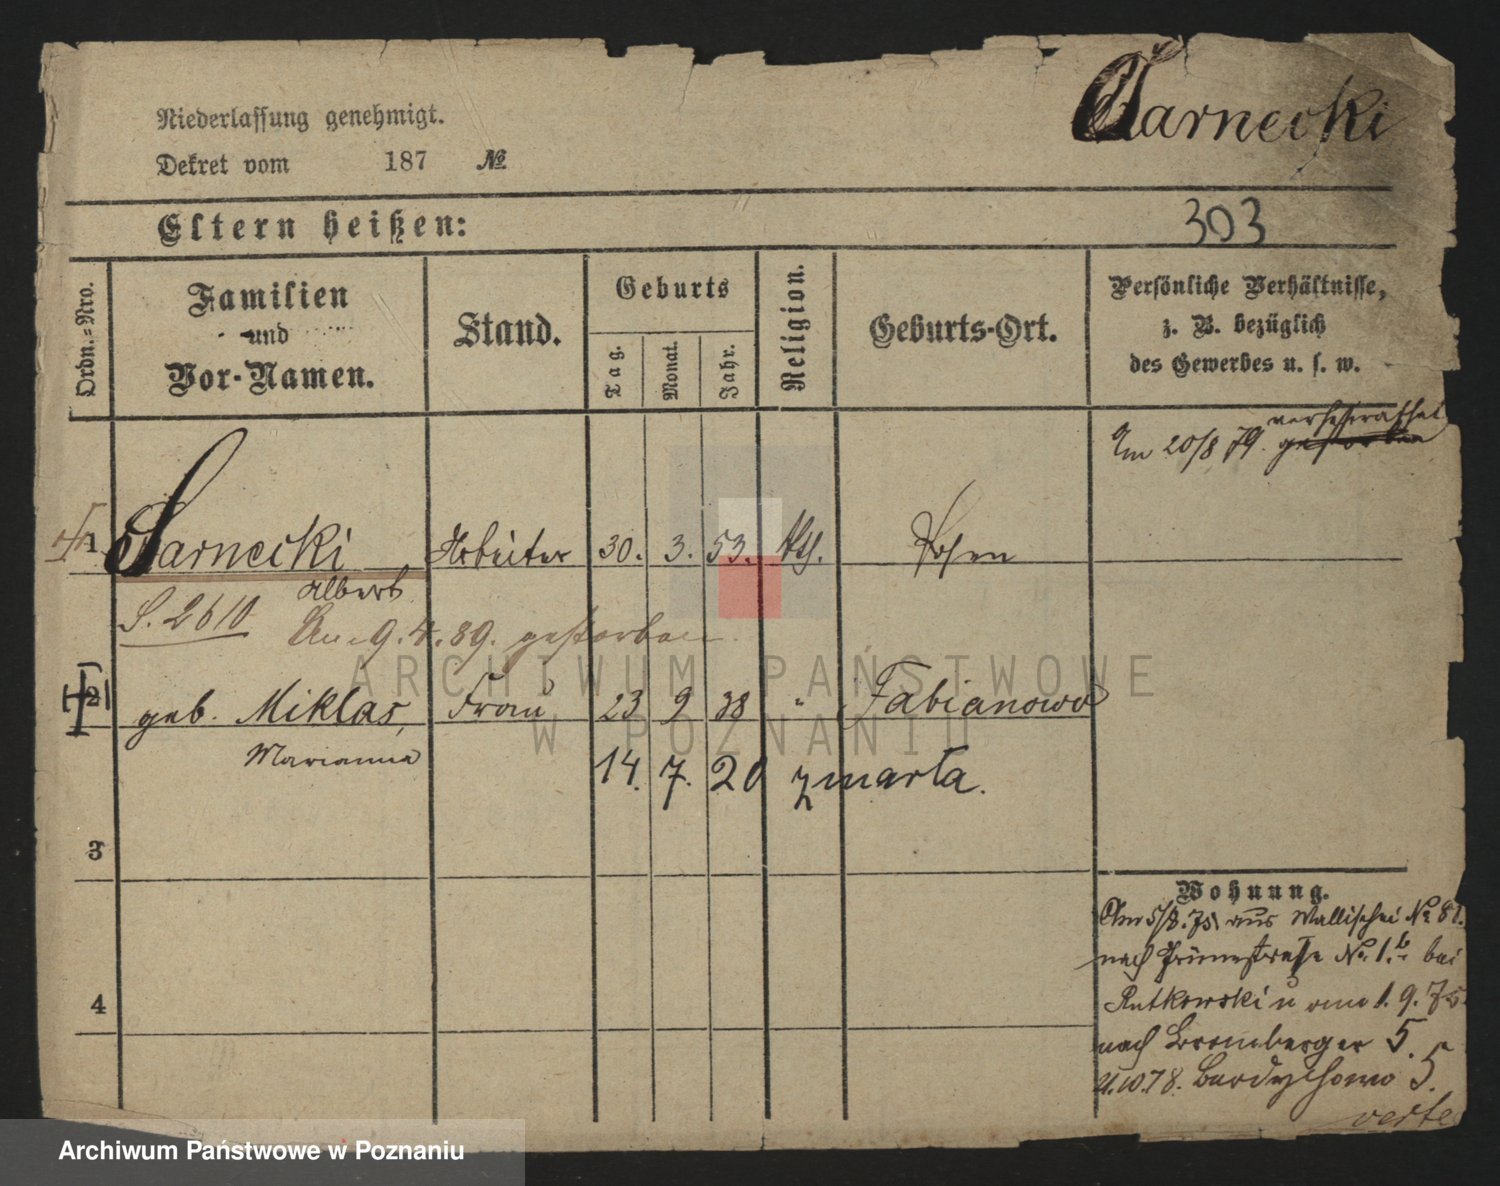 Niederlassung genehmigt.
Dekret vom 187 №
Sarnecki
Eltern heißen:
303
Ordn.-Nro.
Familien
und
Vor-Namen.
Stand.
Geburts
Tag.
Monat.
Jahr.
Religion.
Geburts-Ort.
Persönliche Verhältnisse,
z. B. bezüglich
des Gewerbes u. s. w.
verheirathet
Am 20/8 79. gestorben
1 Sarnecki Arbeiter 30. 3. 53. kth. Posen
Albert
S. 2610
Am 9. 4. 89. gestorben.
2 geb. Miklas, Frau 23 9 38 " Fabianowo
Marianna
14. 7. 20 zmarła.
3
4
Wohnung.
Am 5/8. 75 aus Wallischei № 81.
nach Hrünestraße No. 1.b bei
Rutkowski u am 1. 9. 75
nach Bromberger 5.
4.10.78. Berdychowo 5.
verte
ARCHIWUM PAŃSTWOWE
W POZNANIU
Archiwum Państwowe w Poznaniu